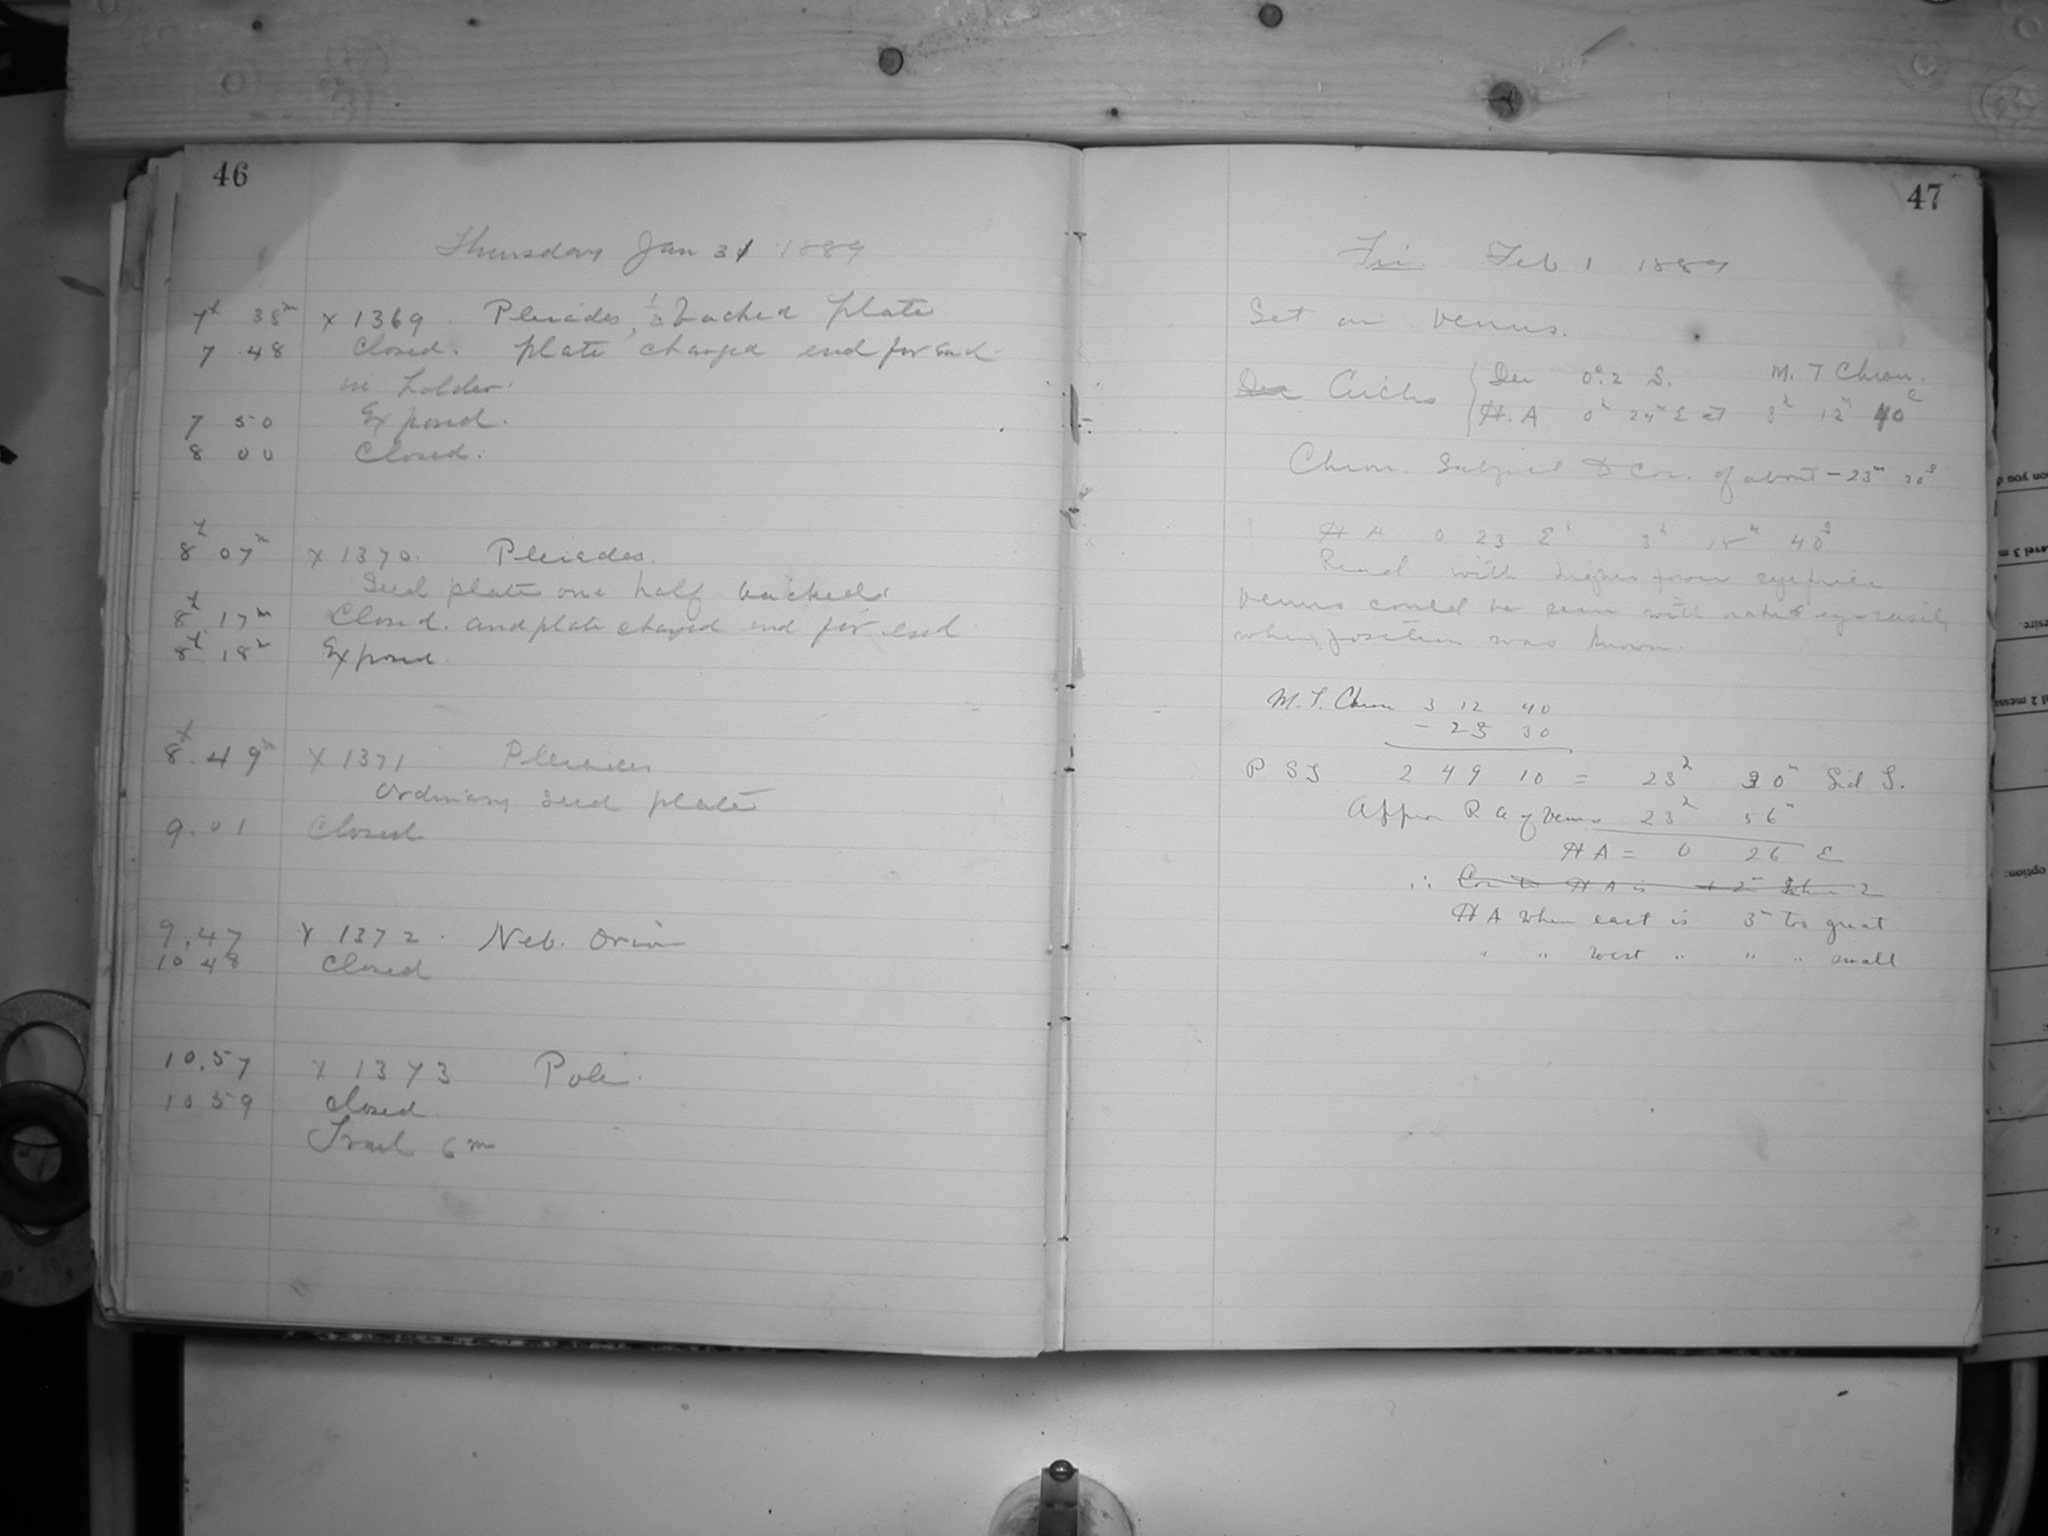 46
Thursday Jan 31 1889
7h 38m x 1369. Pleiades, ½ backed plate
7 48 Closed. plate changed end for end
in holder.
7 50 Exposed.
8 00 Closed.
8h 07m x 1370. Pleiades.
Seed plate one half backed
8h 17m Closed. and plate changed end for end
8h 18m Exposed.
8h 49m x 1371 Pleiades
Ordinary Seed plate
9.01 Closed
9.47 x 1372. Neb. Orion
10 48 Closed
10.57 x 1373 Pole.
10 59 closed
Trail 6m
47
Fri. Feb 1 1889
Set on Venus.
Circles Dec 0°.2 S. M. T Chron.
H.A 0h 24m E at 3h 12m 40s
Chron. Subject to Cor. of about -23m 30s
H A 0 23 E 3h 15m 40s
Read with higher power eyepiece
Venus could be seen with naked eye easily
when position was known.
M. T. Chron 3 12 40
- 23 30
P S T 2 49 10 = 23h 30m Sid T.
Approx R a of Venus 23h 56m
H A = 0 26 E
∴ Cor to H A is + 2m When
H A when east is 3m too great
" " west " " " small